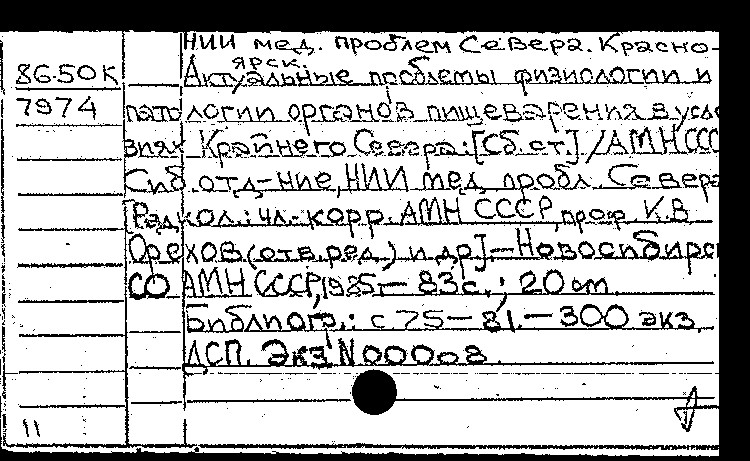 НИИ мед. проблем Севера. Красно-
ярск.
86-50К
Актуальные проблемы физиологии и
7974
патологии органов пищеварения в усло
виях Крайнего Севера: [Сб. ст.] / АМН ССС
Сиб. отд-ние, НИИ мед. пробл. Севера
[Редкол.: чл.-корр. АМН СССР, проф. К.В.
Орехов (отв. ред.) и др.].— Новосибирск
СО АМН СССР, 1985.— 83 с.; 20 см.
Библиогр.: с 75—81.— 300 экз.
ДСП. Экз N 00008.
11